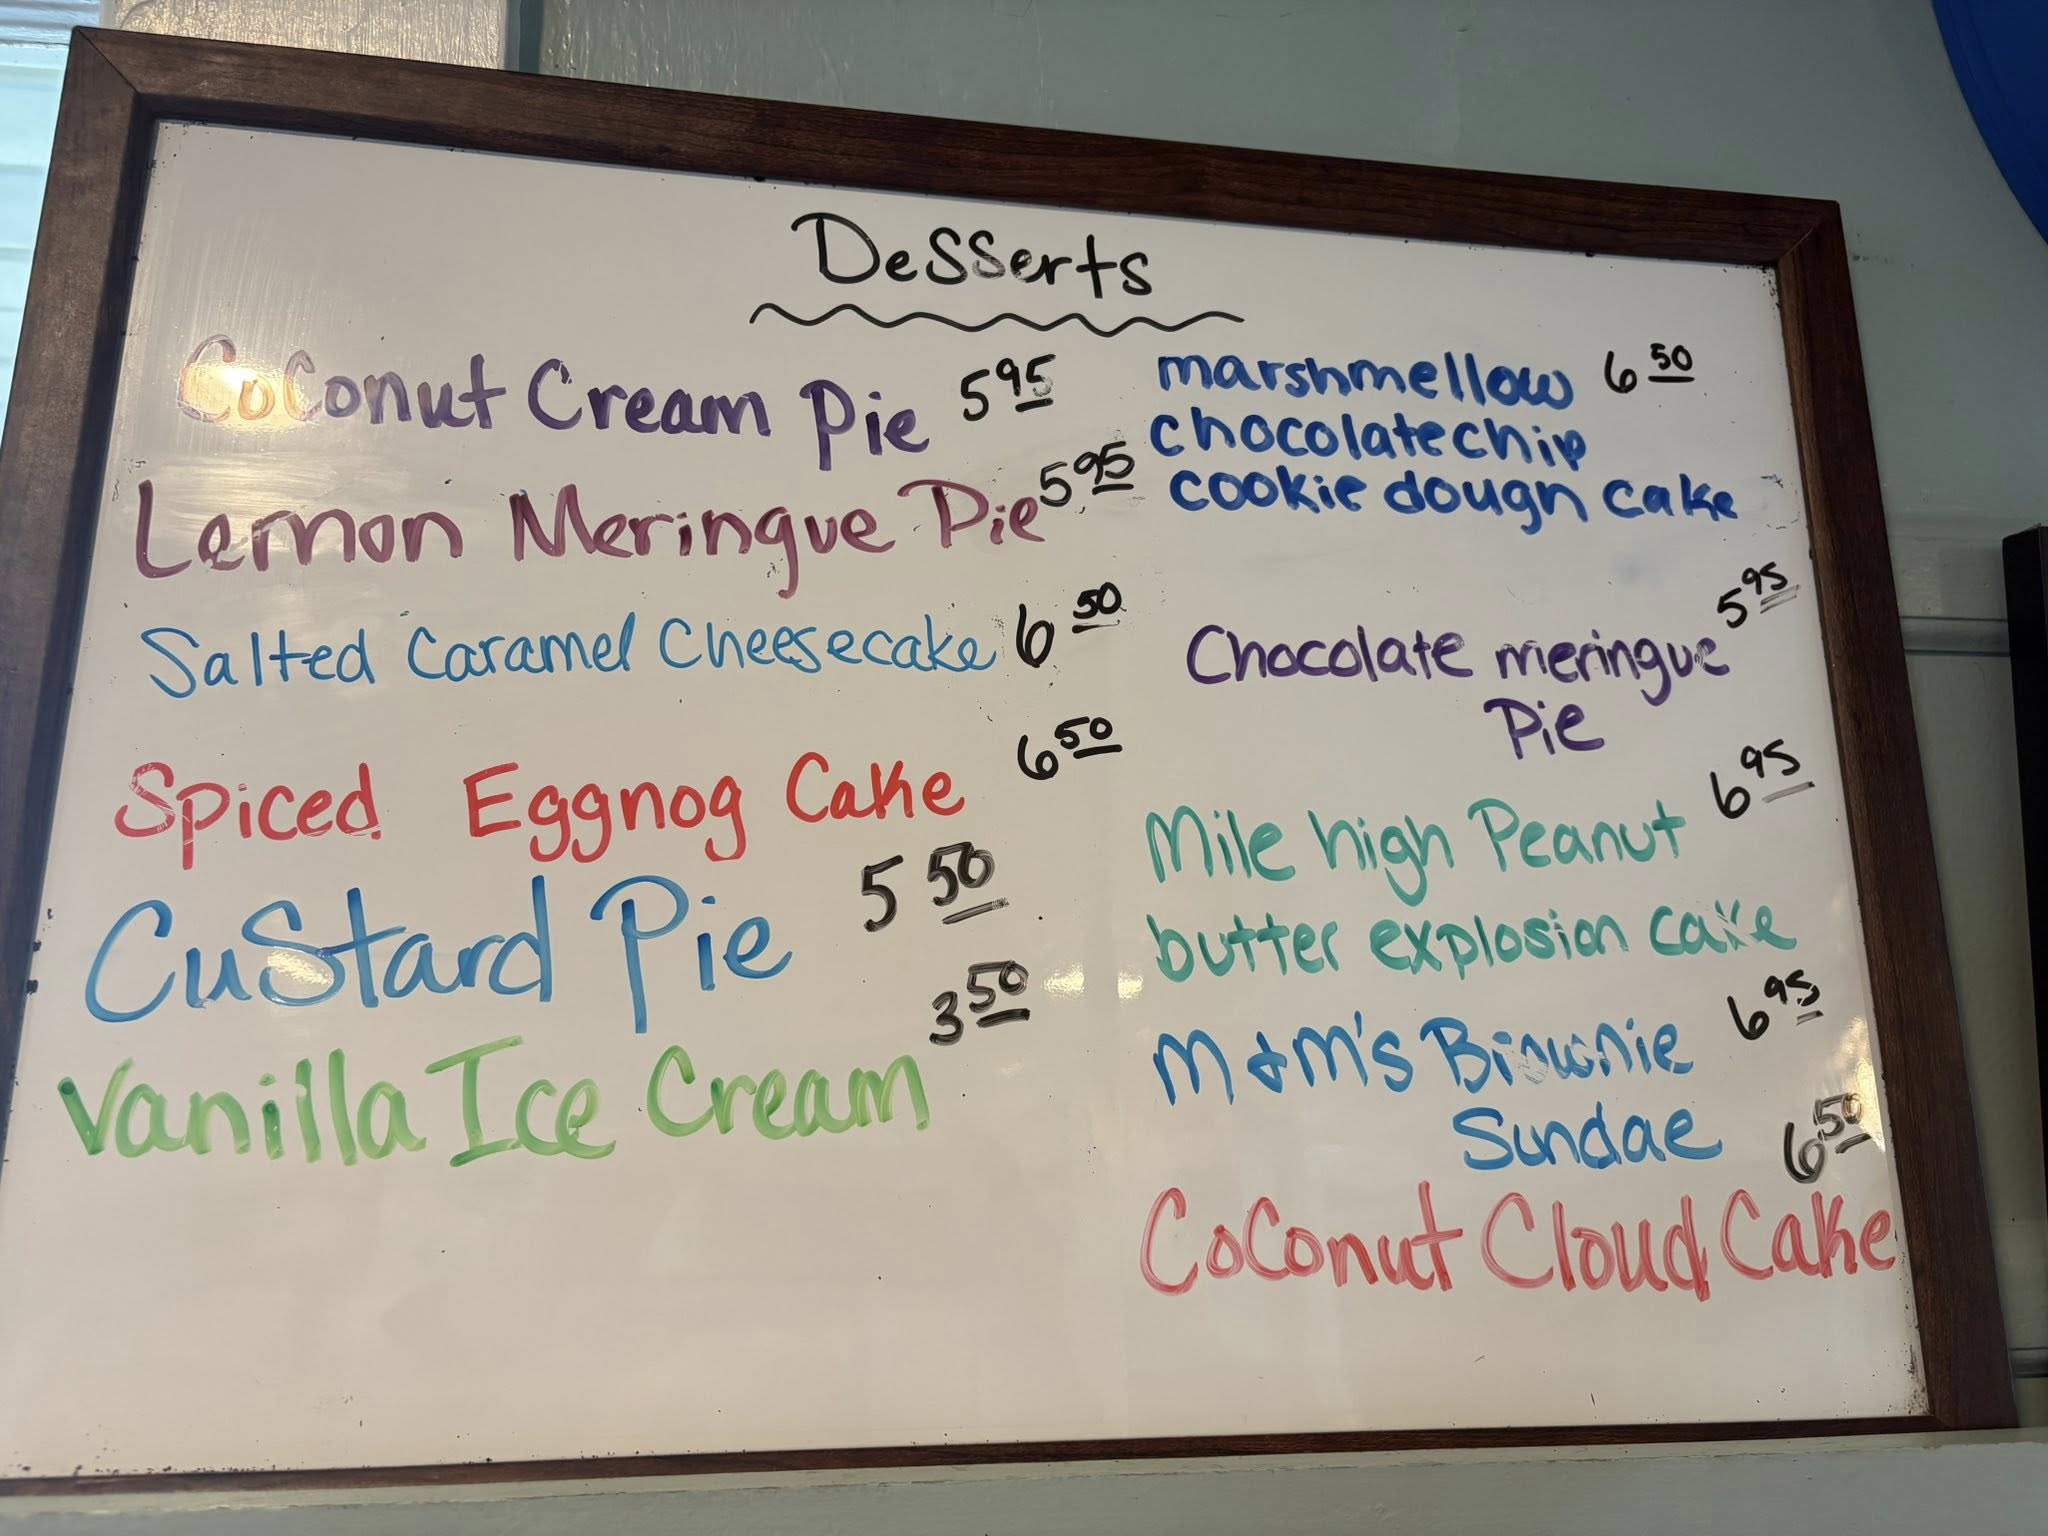 Desserts
Coconut Cream Pie 5 95
Lemon Meringue Pie 5 95
Salted Caramel Cheesecake 6 50
Spiced Eggnog Cake 6 50
Custard Pie 5 50
Vanilla Ice Cream 3 50
marshmellow 6 50
chocolatechip
cookie dough cake
Chocolate meringue 5 95
Pie
Mile high Peanut 6 95
butter explosion cake
M&M's Brownie 6 95
Sundae
Coconut Cloud Cake 6 50